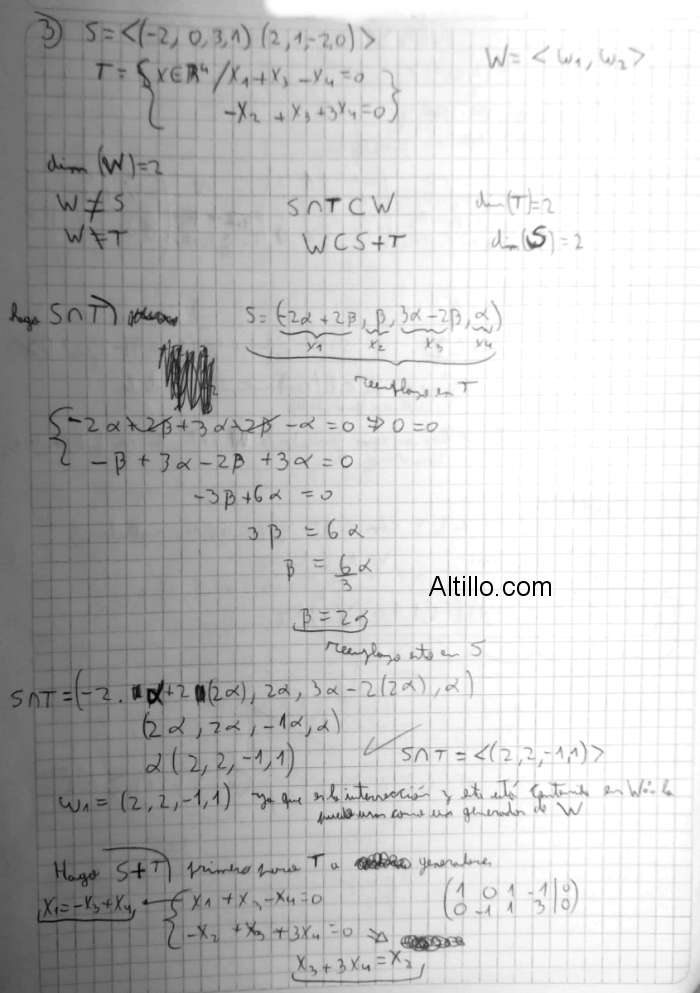 3) S = <(-2, 0, 3, 1) (2, 1, -2, 0)>
W = <w1, w2>
T = { X ∈ R⁴ / X1 + X3 - X4 = 0
-X2 + X3 + 3X4 = 0 }
dim (W) = 2
W ≠ S    S∩T ⊂ W    dim(T) = 2
W ≠ T    W ⊂ S+T    dim(S) = 2
hago S∩T    S = (-2α + 2β, β, 3α - 2β, α)
X1 X2 X3 X4
reemplazo en T
{ -2α + 2β + 3α - 2β - α = 0 ⇒ 0 = 0
-β + 3α - 2β + 3α = 0
-3β + 6α = 0
3β = 6α
β = 6/3 α
Altillo.com
β = 2α
reemplazo esto en S
S∩T = (-2. α + 2 (2α), 2α, 3α - 2(2α), α)
(2α, 2α, -1α, α)
α (2, 2, -1, 1)    S∩T = <(2, 2, -1, 1)>
w1 = (2, 2, -1, 1) ya que es la intersección y esta está contenida en W la
puedo usar como un generador de W
Hago S+T primero paso T a generadores
X1 = -X3 + X4 ← { X1 + X3 - X4 = 0    (1 0 1 -1 | 0
-X2 + X3 + 3X4 = 0    0 -1 1 3 | 0)
X3 + 3X4 = X2